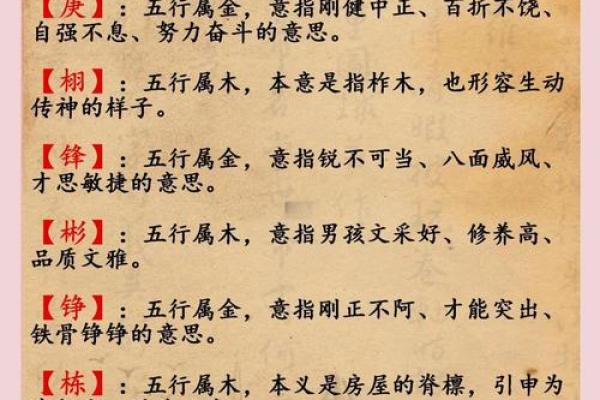 【庚】：五行属金，意指刚健中正、百折不饶、
自强不息、努力奋斗的意思。
【栩】：五行属木，本意是指柞木，也形容生动
传神的样子。
【锋】：五行属金，意指锐不可当、八面威风、
才思敏捷的意思。
【彬】：五行属木，意指男孩文采好、修养高、
品质文雅。
【铮】：五行属金，意指刚正不阿、才能突出、
铁骨铮铮的意思。
【栋】：五行属木，本义是房屋的脊檩，引申为